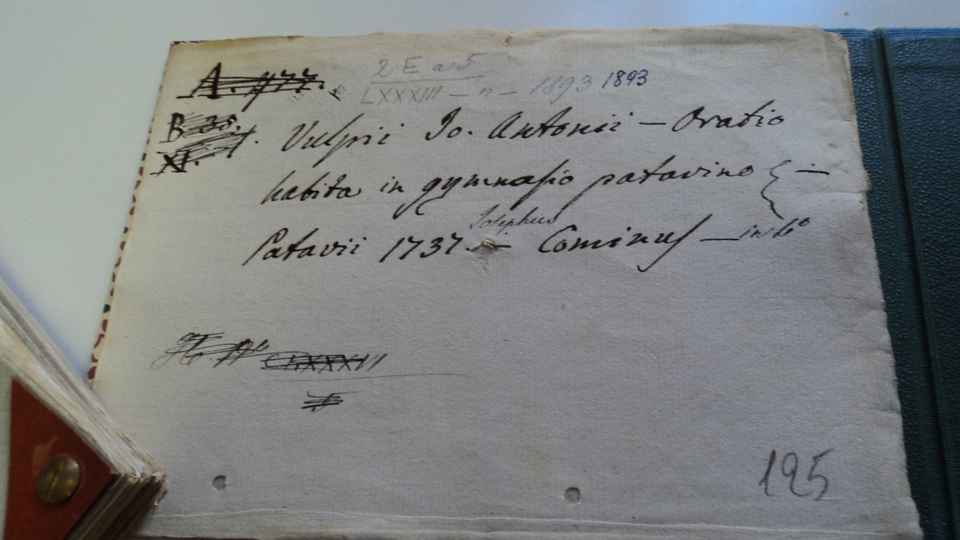 A. 477.
2 E
LXXXIII - n - 1893 1893
B 35.
XI. 7. Vulpii Jo. Antonii – Oratio
habita in gymnasio patavino –
Patavii 1737 – Josephus Cominus – in 4°
195